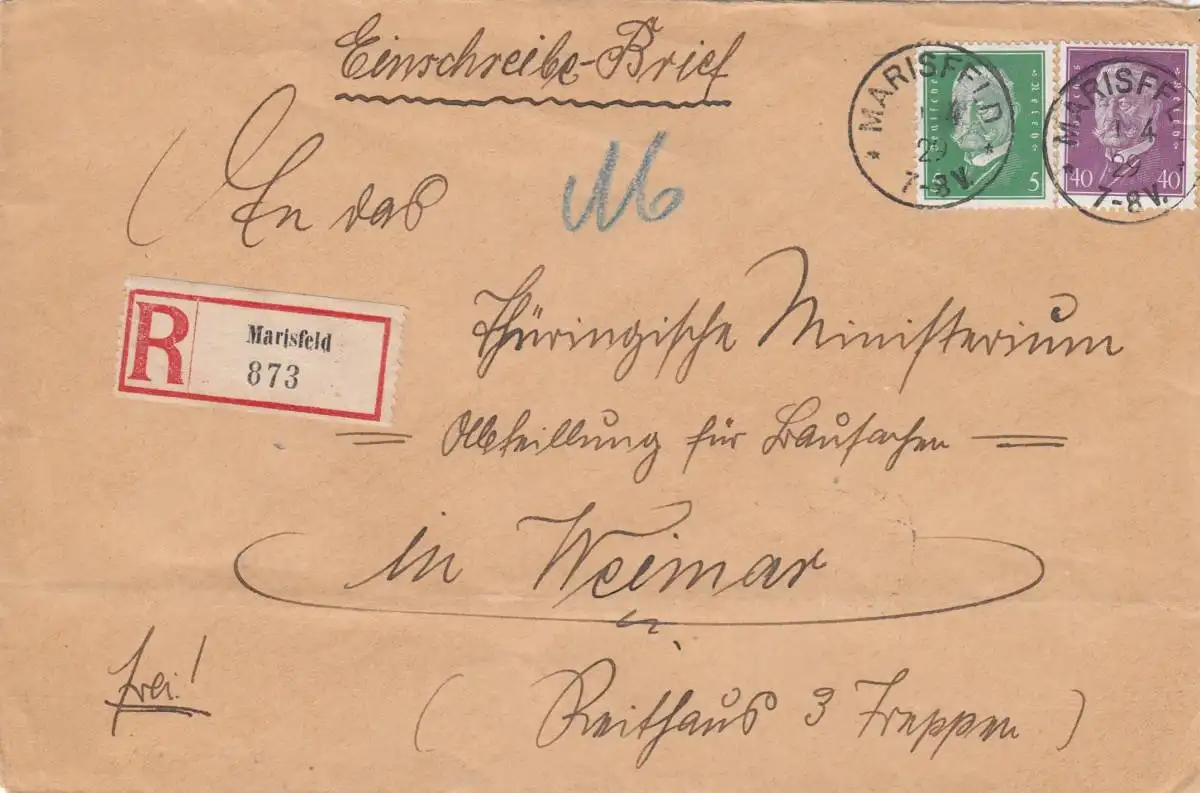 Einschreibe-Brief
MARISFELD
1 4
29
7-8 V.
Deutsches Reich
5 5
MARISFEL
1 4
29
7-8 V.
Reich
40 40
An das
R
Marisfeld
873
Thüringische Ministerium
Abteillung für Bausachen
in Weimar
frei!
( Reithaus 3 Treppen )